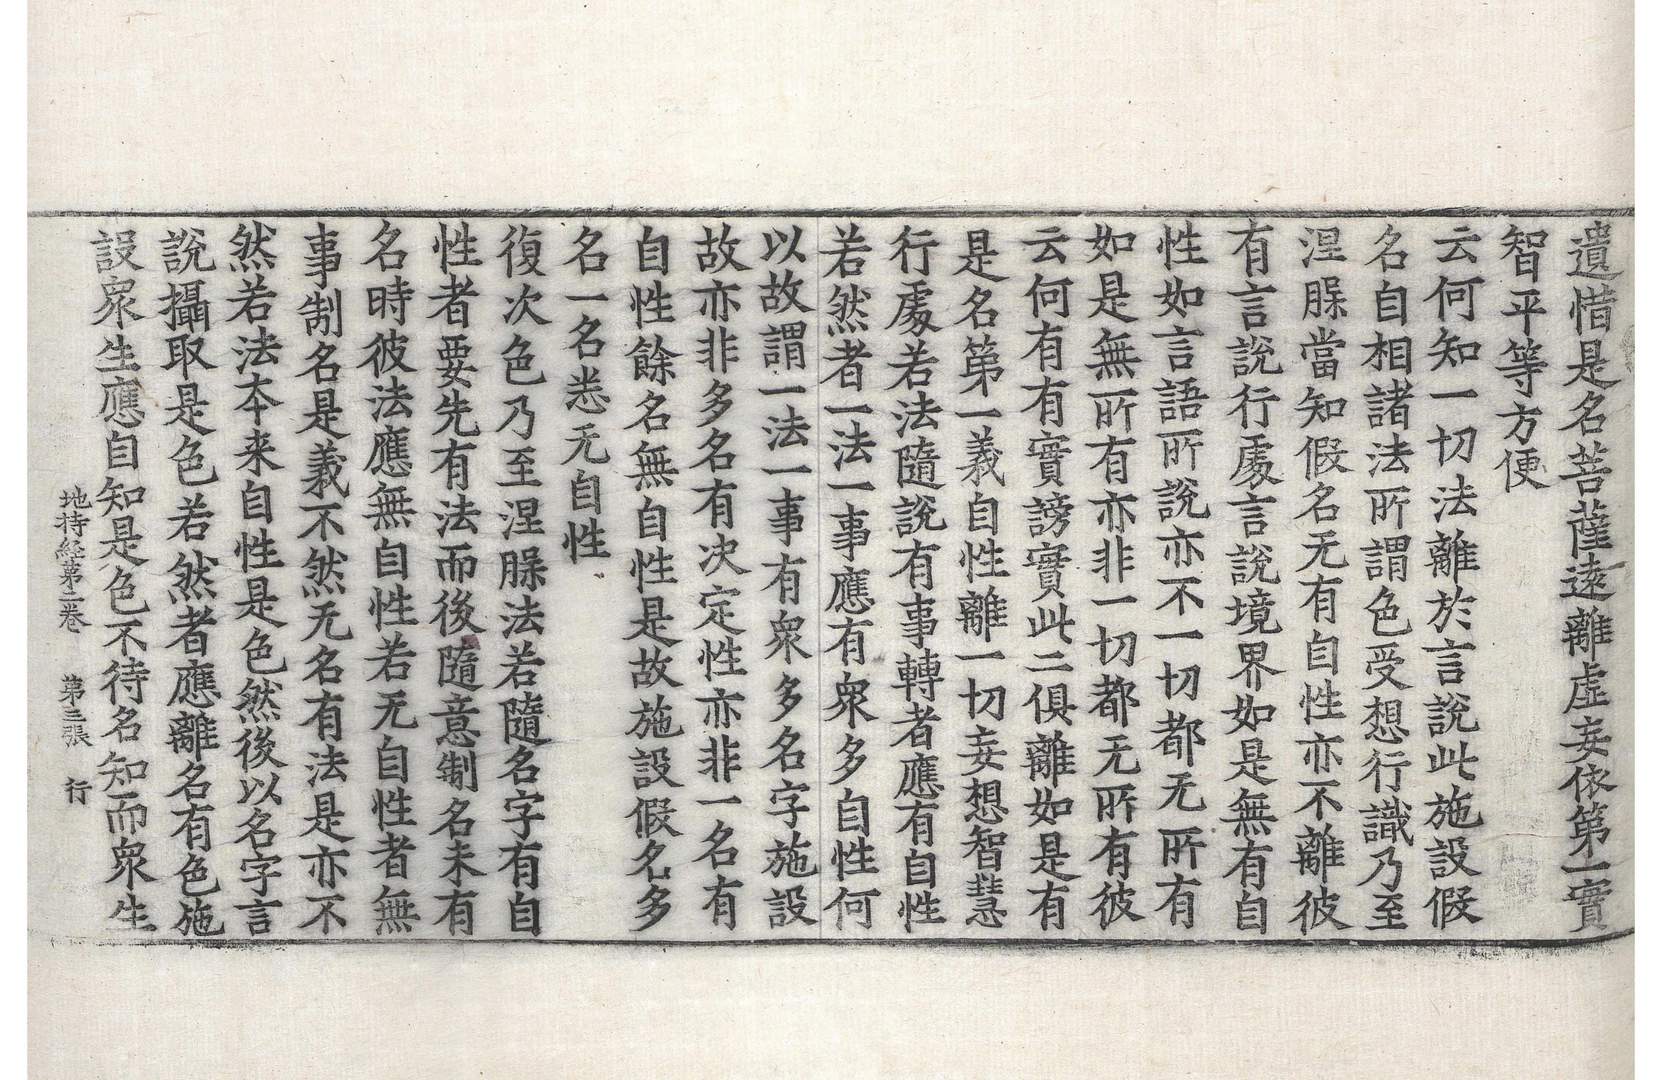 遺惜是名菩薩遠離虛妄依第一實
智平等方便
云何知一切法離於言說此施設假
名自相諸法所謂色受想行識乃至
涅槃當知假名无有自性亦不離彼
有言說行處言說境界如是無有自
性如言語所說亦不一切都无所有
如是無所有亦非一切都无所有彼
云何有有實謗實此二俱離如是有
是名第一義自性離一切妄想智慧
行處若法隨說有事轉者應有自性
若然者一法一事應有衆多自性何
以故謂一法一事有衆多名字施設
故亦非多名有决定性亦非一名有
自性餘名無自性是故施設假名多
名一名悉无自性
復次色乃至涅槃法若隨名字有自
性者要先有法而後隨意制名未有
名時彼法應無自性若无自性者無
事制名是義不然无名有法是亦不
然若法本来自性是色然後以名字言
說攝取是色若然者應離名有色施
設衆生應自知是色不待名知而衆生
地持経第二卷 第三張 行